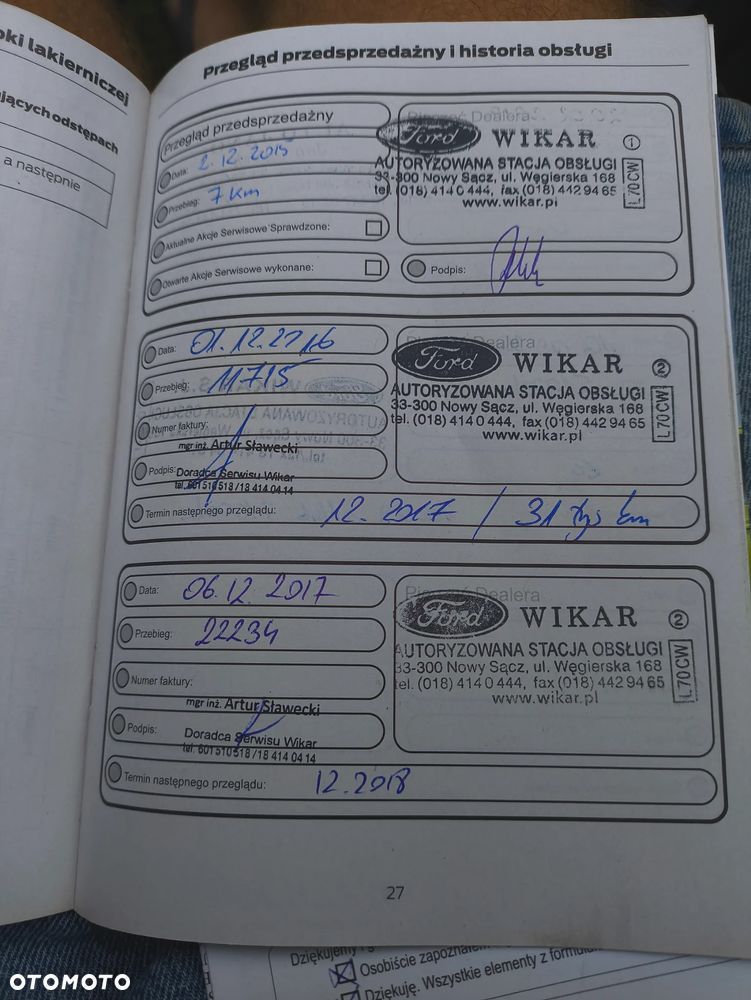 oki lakierniczej
jących odstępach
a następnie
Przegląd przedsprzedażny i historia obsługi
Przegląd przedsprzedażny
Data: 2.12.2015
Przebieg: 7 km
Aktualne Akcje Serwisowe Sprawdzone:
Otwarte Akcje Serwisowe wykonane:
Pieczęć Dealera
Ford WIKAR 1
AUTORYZOWANA STACJA OBSŁUGI
33-300 Nowy Sącz, ul. Węgierska 168
tel. (018) 414 0 444, fax (018) 442 94 65
www.wikar.pl
L70CW
Podpis:
Data: 01.12.2016
Przebieg: 11715
Numer faktury:
mgr inż. Artur Sławecki
Podpis:
Doradca Serwisu Wikar
tel. 601 510 518 / 18 414 04 14
Dealera
Ford WIKAR 2
AUTORYZOWANA STACJA OBSŁUGI
33-300 Nowy Sącz, ul. Węgierska 168
tel. (018) 414 0 444, fax (018) 442 94 65
www.wikar.pl
L70CW
Termin następnego przeglądu: 12.2017 / 31 tys km
Data: 06.12.2017
Przebieg: 22234
Numer faktury:
mgr inż. Artur Sławecki
Podpis:
Doradca Serwisu Wikar
tel. 601 510 518 / 18 414 04 14
Pieczęć Dealera
Ford WIKAR 2
AUTORYZOWANA STACJA OBSŁUGI
33-300 Nowy Sącz, ul. Węgierska 168
tel. (018) 414 0 444, fax (018) 442 94 65
www.wikar.pl
L70CW
Termin następnego przeglądu: 12.2018
27
Dziękujemy
Osobiście zapoznałem
Dziękuję. Wszystkie elementy z formul
OTOMOTO